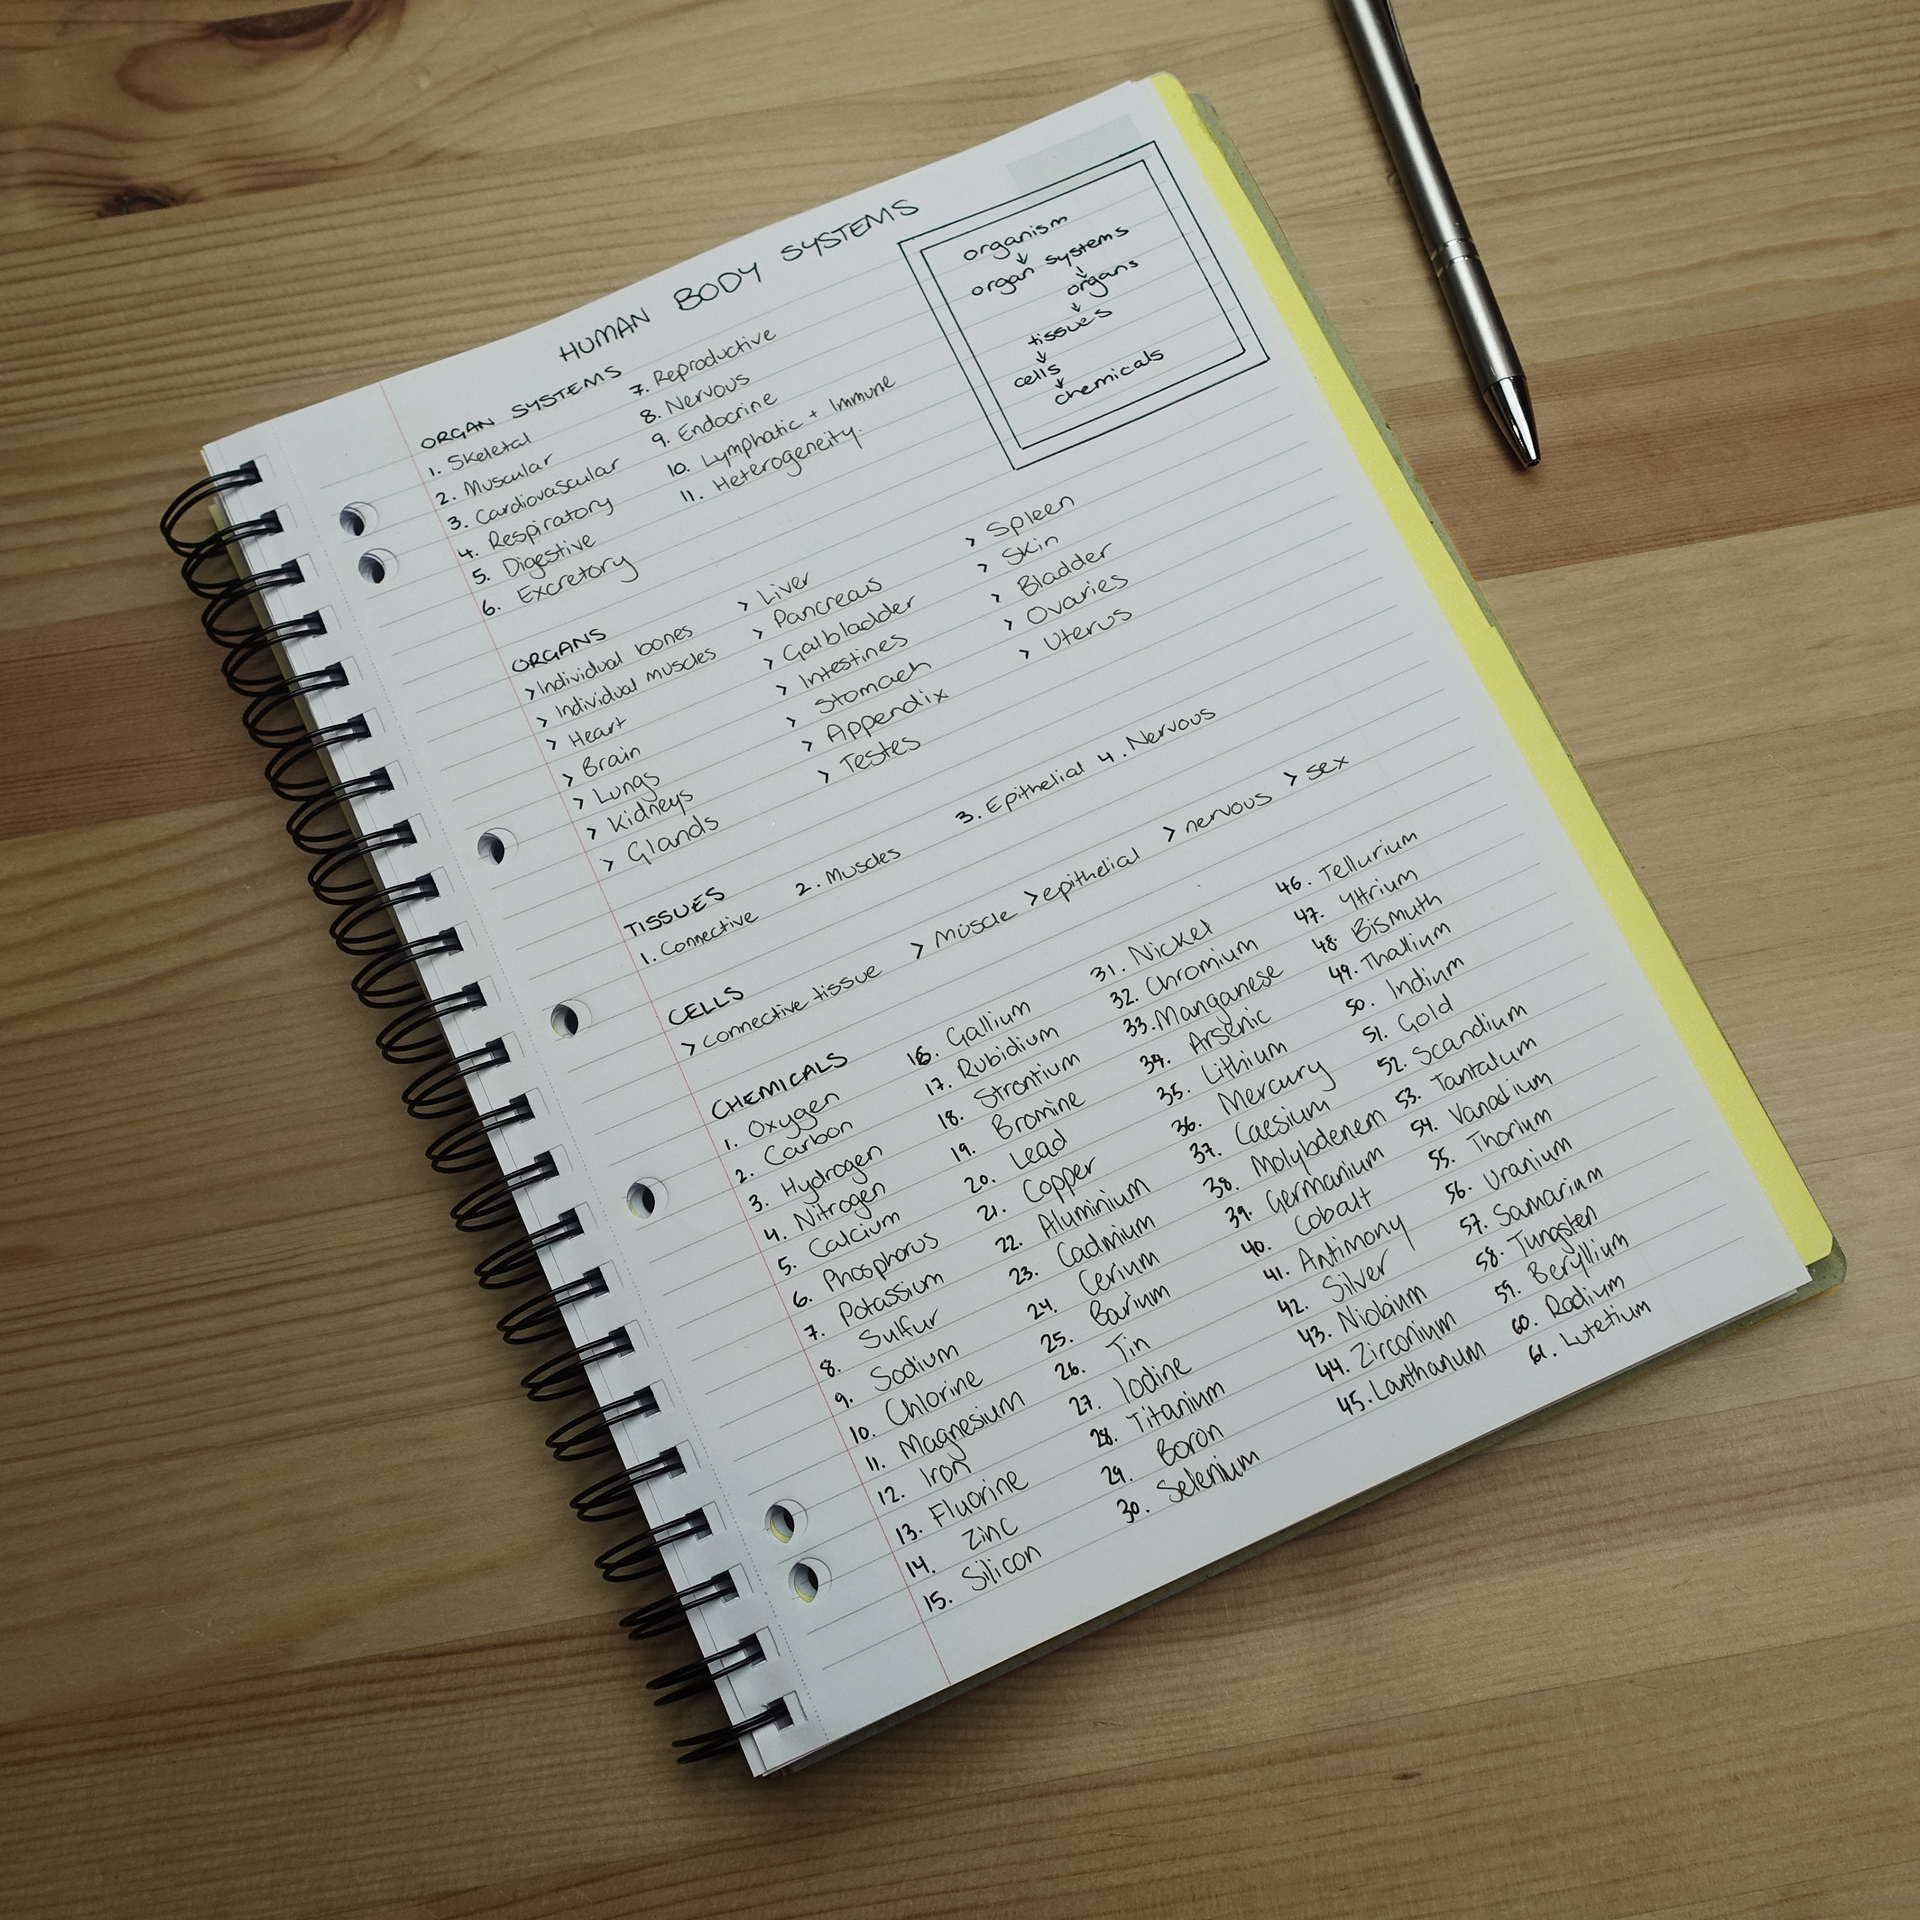 HUMAN BODY SYSTEMS
organism
↓
organ systems
↓
organs
↓
tissues
↓
cells
↓
chemicals
ORGAN SYSTEMS
1. Skeletal
2. Muscular
3. Cardiovascular
4. Respiratory
5. Digestive
6. Excretory
7. Reproductive
8. Nervous
9. Endocrine
10. Lymphatic + Immune
11. Heterogeneity
ORGANS
> Individual bones
> Individual muscles
> Heart
> Brain
> Lungs
> Kidneys
> Glands
> Liver
> Pancreas
> Galbladder
> Intestines
> Stomach
> Appendix
> Testes
> Spleen
> Skin
> Bladder
> Ovaries
> Uterus
TISSUES
1. Connective 2. Muscles 3. Epithelial 4. Nervous
CELLS
> connective tissue > Muscle > epithelial > nervous > sex
CHEMICALS
1. Oxygen
2. Carbon
3. Hydrogen
4. Nitrogen
5. Calcium
6. Phosphorus
7. Potassium
8. Sulfur
9. Sodium
10. Chlorine
11. Magnesium
12. Iron
13. Fluorine
14. Zinc
15. Silicon
16. Gallium
17. Rubidium
18. Strontium
19. Bromine
20. Lead
21. Copper
22. Aluminium
23. Cadmium
24. Cerium
25. Barium
26. Tin
27. Iodine
28. Titanium
29. Boron
30. Selenium
31. Nickel
32. Chromium
33. Manganese
34. Arsenic
35. Lithium
36. Mercury
37. Caesium
38. Molybdenem
39. Germanium
40. Cobalt
41. Antimony
42. Silver
43. Niobium
44. Zirconium
45. Lanthanum
46. Tellurium
47. Yttrium
48. Bismuth
49. Thallium
50. Indium
51. Gold
52. Scandium
53. Tantalum
54. Vanadium
55. Thorium
56. Uranium
57. Samarium
58. Tungsten
59. Beryllium
60. Radium
61. Lutetium